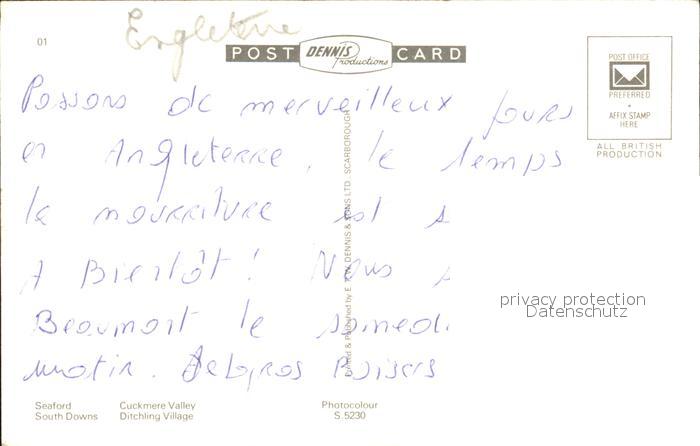 Engleterre
01
POST DENNIS Productions CARD
POST OFFICE
PREFERRED
AFFIX STAMP
HERE
ALL BRITISH
PRODUCTION
Passons de merveilleux jours
en Angleterre, le temps
la nourriture est s
A Bientôt ! Nous s
Beaumont le samedi
matin. De gros Baisers
Printed & Published by E. T. W. DENNIS & SONS LTD., SCARBOROUGH
privacy protection
Datenschutz
Seaford Cuckmere Valley
South Downs Ditchling Village
Photocolour
S.5230